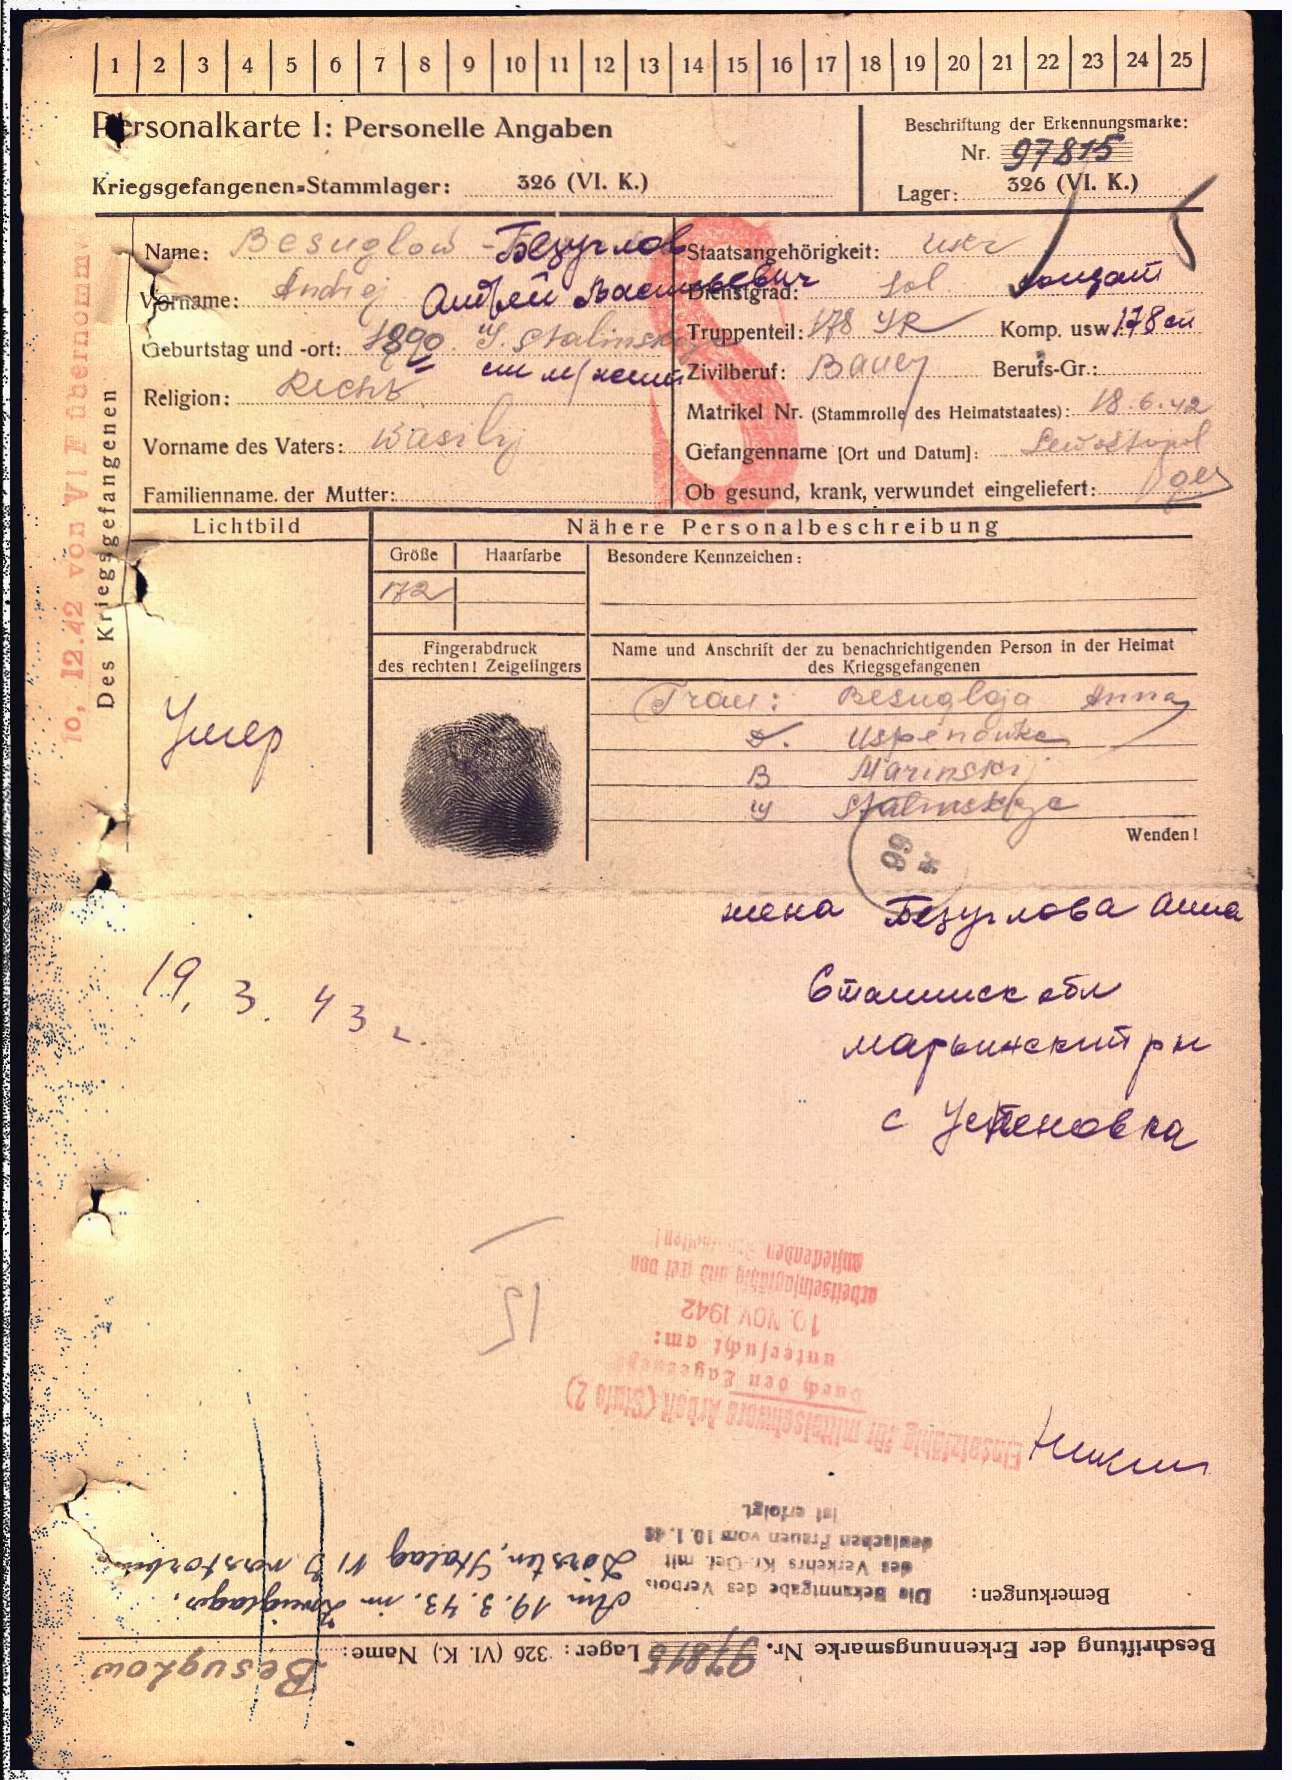 1 2 3 4 5 6 7 8 9 10 11 12 13 14 15 16 17 18 19 20 21 22 23 24 25
Personalkarte I: Personelle Angaben
Kriegsgefangenen-Stammlager: 326 (VI. K.)
Beschriftung der Erkennungsmarke:
Nr. 97815
Lager: 326 (VI. K.)
10. 12.42 von VI F übernommen
Des Kriegsgefangenen
S
Name: Besuglow - Безуглов
Vorname: Andrej Андрей Васильевич
Geburtstag und -ort: 1890 Stalinskaja
Religion:
Vorname des Vaters: Wasilij
Familienname der Mutter:
Staatsangehörigkeit: Ukr
Dienstgrad: Sol солдат
Truppenteil: 178 Komp. usw. 178
Zivilberuf: Bauer Berufs-Gr.:
Matrikel Nr. (Stammrolle des Heimatstaates): 18.6.42
Gefangenname [Ort und Datum]: Sewastopol
Ob gesund, krank, verwundet eingeliefert: ges
Lichtbild
Nähere Personalbeschreibung
Größe Haarfarbe Besondere Kennzeichen:
172
Fingerabdruck
des rechten! Zeigefingers
Name und Anschrift der zu benachrichtigenden Person in der Heimat
des Kriegsgefangenen
Frau: Besuglaja Anna
D. Uspenowka
B Marinskij
Stalinskaje
Wenden!
Умер
99
19. 3. 43 г.
жена Безуглова Анна
Сталинск обл
Марьинский рн
с Успеновка
15
Einsatzfähig für mittelschwere Arbeit (Stufe 2)
durch den Lagerarzt
untersucht am:
10. NOV 1942
arbeitseinsatzfähig und frei von
ansteckenden
Bemerkungen:
Die Bekanntgabe des Verbots
des Verkehrs Kr.-Gef. mit
deutschen Frauen vom 10.1.42
ist erfolgt.
Am 19.3.43. im Zweiglager
Dorsten, Stalag VI verstorben
Beschriftung der Erkennungsmarke Nr. 97815 Lager: 326 (VI. K.) Name: Besuglow